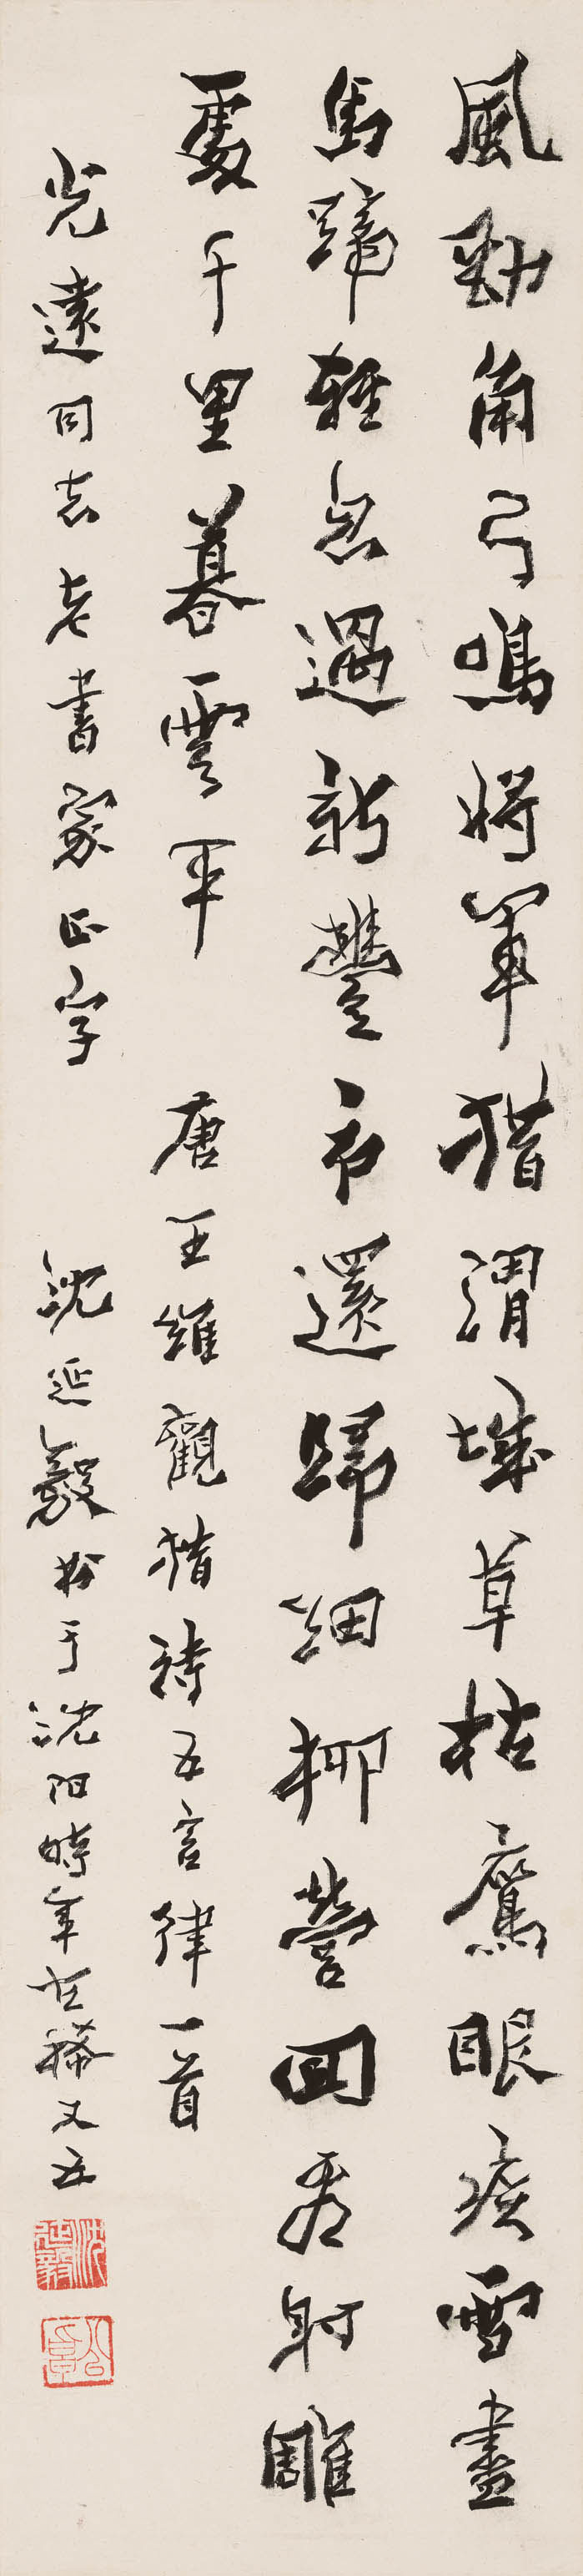 風勁角弓鳴將軍猎渭城草枯鷹眼疾雪盡
馬蹄輕忽過新豐市還歸細柳營回看射雕
處千里暮雲平 唐王維觀猎詩五言律一首
光遠同志老書家正字 沈延毅於于沈阳時年世幾又五
沈延毅